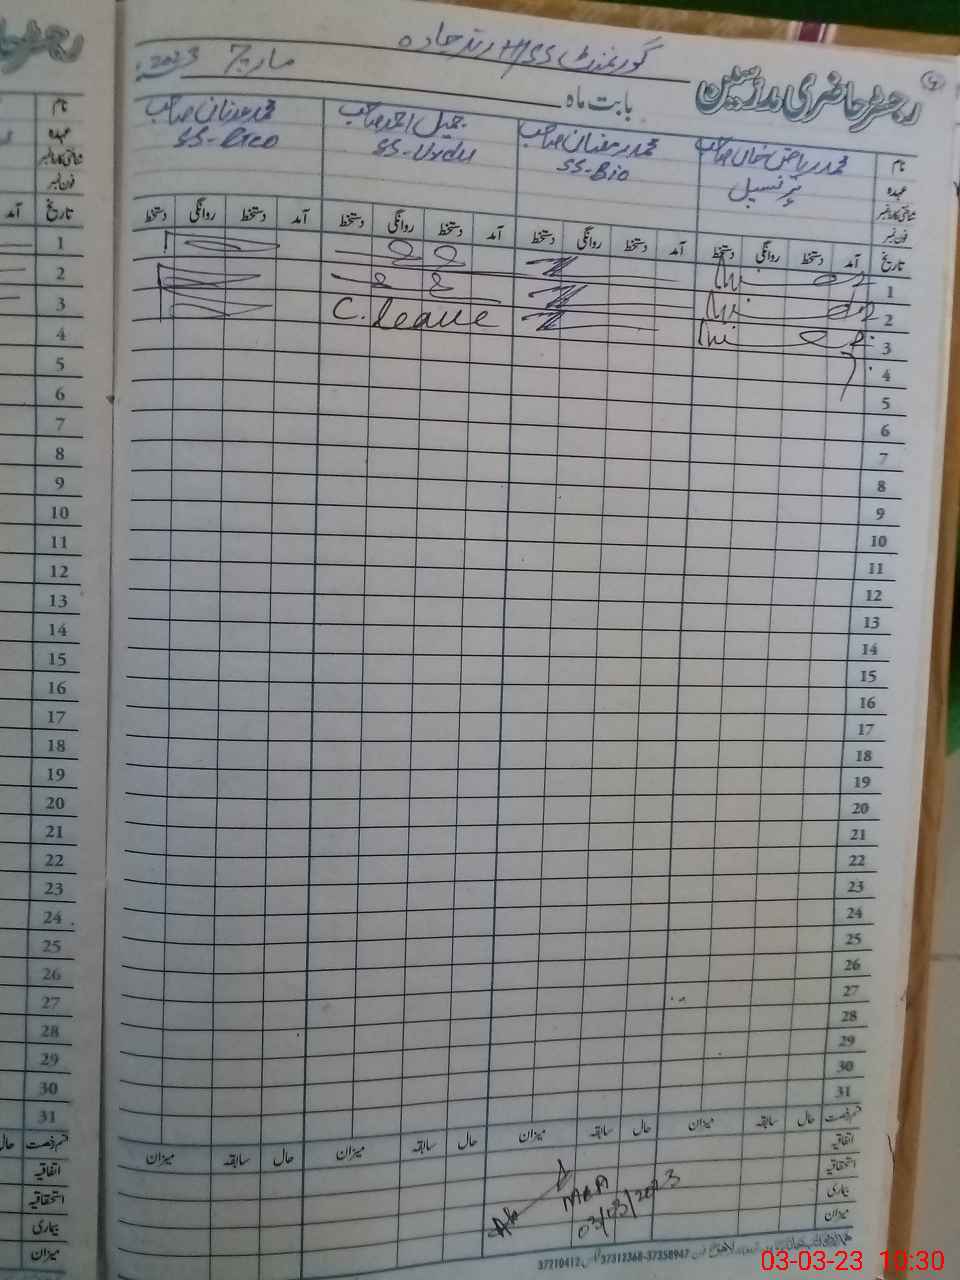 رجسٹر حاضری مدرسین
گورنمنٹ HSS رندھادہ
بابت ماہ مارچ 2023
نام محمد ریاض خان صاحب محمد رمضان صاحب جمیل احمد صاحب محمد عدنان صاحب
عہدہ پرنسپل SS-Bio SS-Urdu SS-Eco
شناختی کارڈ نمبر
فون نمبر
تاریخ آمد دستخط روانگی دستخط آمد دستخط روانگی دستخط آمد دستخط روانگی دستخط آمد دستخط روانگی دستخط
1
2
3 C. leave
4
5
6
7
8
9
10
11
12
13
14
15
16
17
18
19
20
21
22
23
24
25
26
27
28
29
30
31
قسم رخصت حال سابقہ میزان حال سابقہ میزان حال سابقہ میزان حال سابقہ میزان
اتفاقیہ
استحقاقیہ
بیماری
میزان
MEA
03/03/2023
37210412 37312368-37358947
نام
عہدہ
شناختی کارڈ نمبر
فون نمبر
تاریخ آمد
1
2
3
4
5
6
7
8
9
10
11
12
13
14
15
16
17
18
19
20
21
22
23
24
25
26
27
28
29
30
31
قسم رخصت حال
اتفاقیہ
استحقاقیہ
بیماری
میزان
03-03-23 10:30